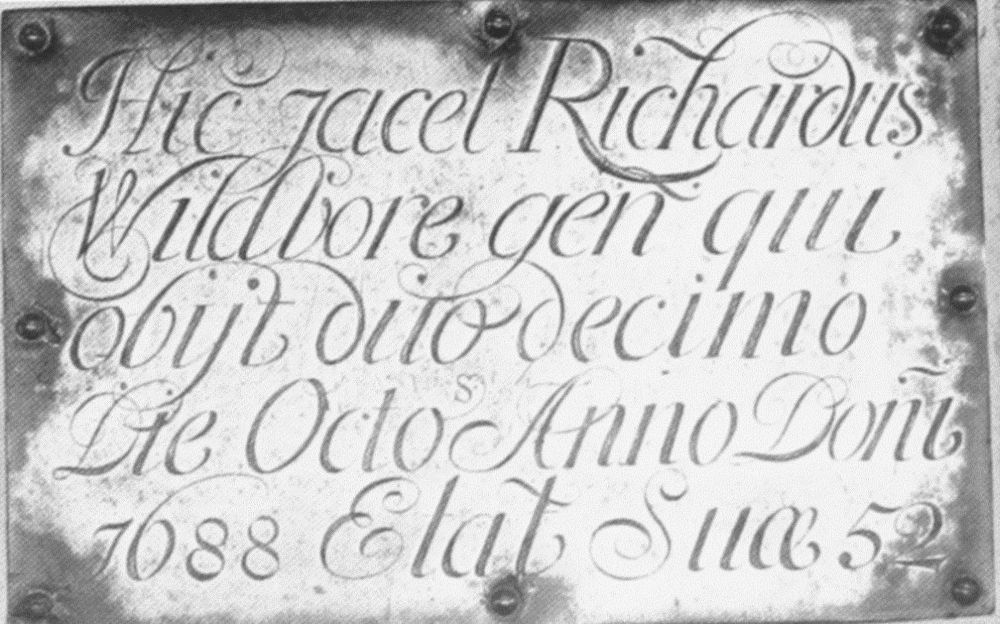 Hic jacet Richardus
Wildbore gen̄ qui
obijt duo decimo
Die Octoˢ Anno Dom̄i
1688 Etat Suæ 52